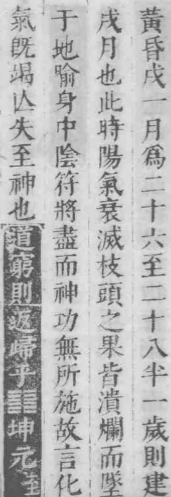 黃昏戌一月爲二十六至二十八半一歲則建
戌月也此時陽氣衰滅枝頭之果皆潰爛而墜
于地喻身中陰符將盡而神功無所施故言化
氣旣竭亾失至神也道窮則返歸乎䷁坤元至